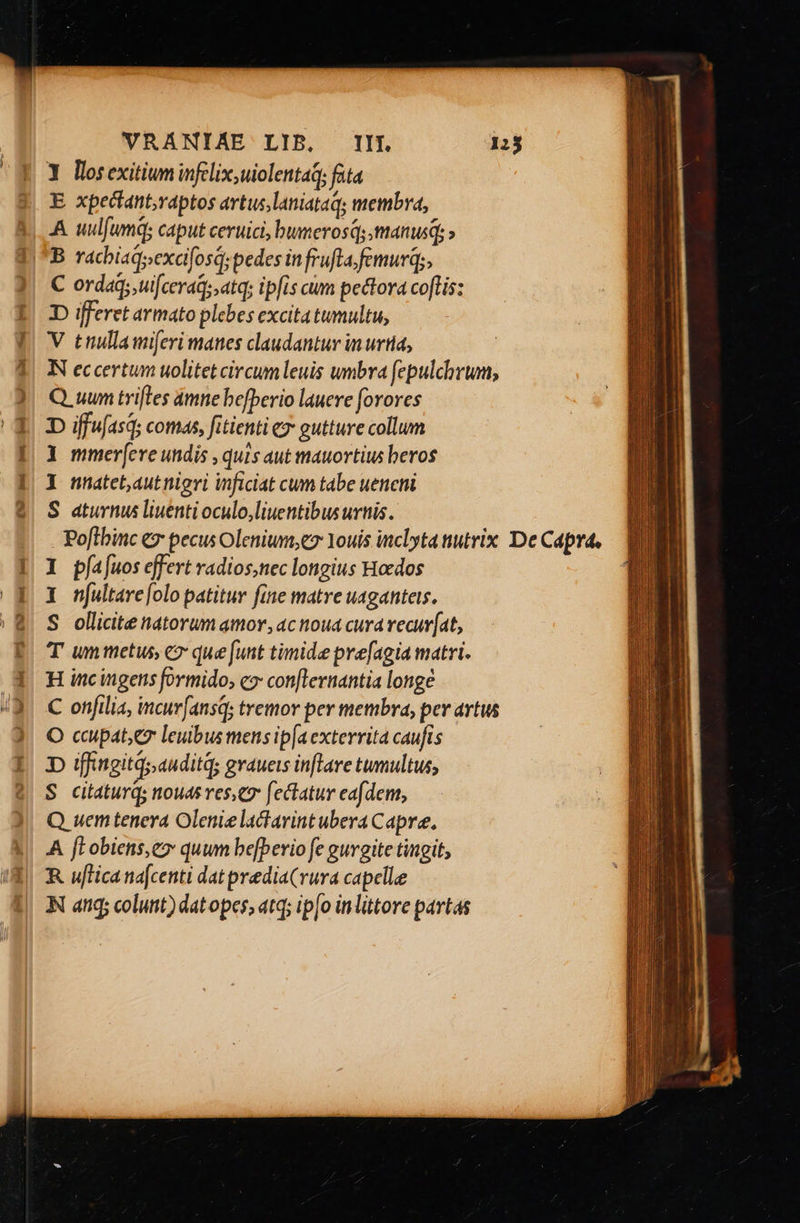 VRANIAE LIB. III. 123
I llos exitium infelix,uiolentaq́; fata
E xpectant,raptos artus,laniataq́; membra,
A uulſumq́; caput ceruici, humerosq́;,manusq́;,
B rachiaq́;,exciſosq́; pedes in fruſta,femurq́;,
C ordaq́;,uiſceraq́;,atq; ipſis cum pectora coſtis:
D ifferet armato plebes excita tumultu,
V t nulla miſeri manes claudantur in urna,
N ec certum uolitet circum leuis umbra ſepulchrum,
Q uum triſtes amne heſperio lauere ſorores
D iffuſasq́; comas, ſitienti & gutture collum
I mmerſere undis, quis aut mauortius heros
I nnatet,aut nigri inficiat cum tabe ueneni
S aturnus liuenti oculo,liuentibus urnis.
Poſthinc & pecus Olenium,& Iouis inclyta nutrix De Capra.
I pſa ſuos effert radios,nec longius Hœdos
I nſultare ſolo patitur ſine matre uaganteis.
S ollicitæ natorum amor, ac noua cura recurſat,
T um metus, & quæ ſunt timidæ præſagia matri.
H inc ingens formido, & conſternantia longe
C onſilia, incurſansq́; tremor per membra, per artus
O ccupat,& leuibus mens ipſa exterrita cauſis
D iffingitq́;,auditq́; graueis inſtare tumultus,
S citaturq́; nouas res,& ſectatur eaſdem,
Q uem tenera Oleniæ lactarint ubera Capræ.
A ſt obiens,& quum heſperio ſe gurgite tingit,
R uſtica naſcenti dat prædia(rura capellæ
N anq; colunt) dat opes, atq; ipſo in littore partas